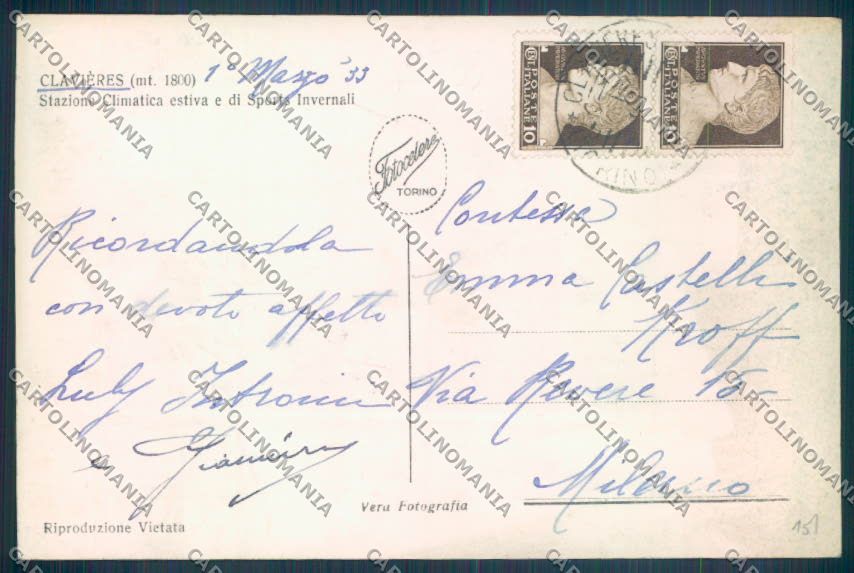 CLAVIÈRES (mt. 1800) 1° Marzo '33
Stazione Climatica estiva e di Sports Invernali
Fotocelere
TORINO
POSTE ITALIANE
10
POSTE ITALIANE
10
TORINO
Ricordandola
con devoto affetto
Luly
e
Contessa
Emma Castelli
Kroff
Via Revere 15
Milano
Vera Fotografia
Riproduzione Vietata
151
CARTOLINOMANIA